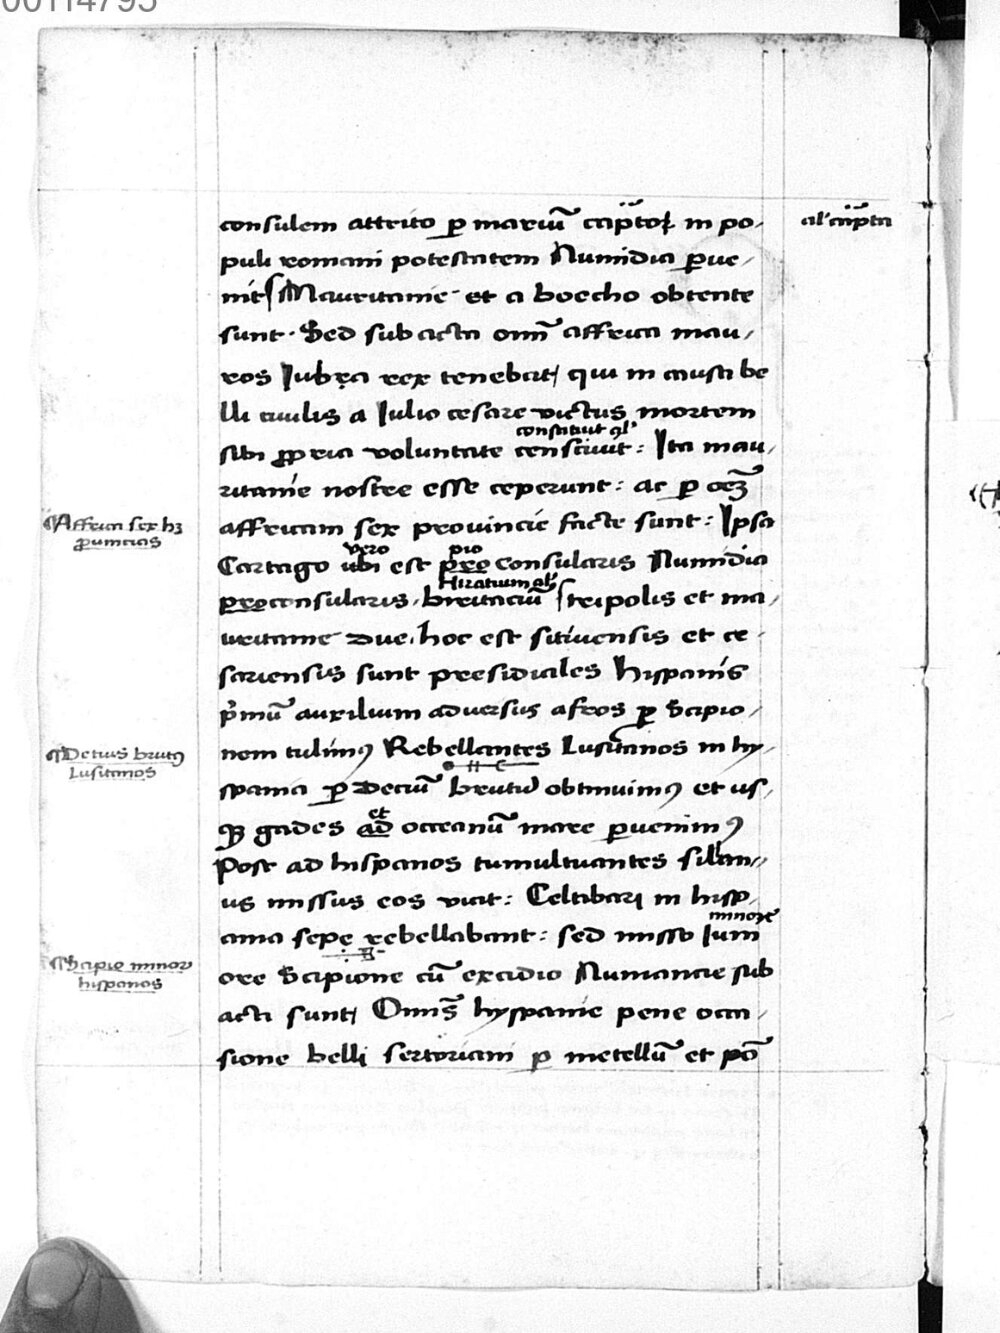 00114795
consulem attrito ꝑ mariū cap̄toꝝ in po/
puli romani potestatem Numidia ꝑue/
nit Mauritanie et a boecho obtente
sunt. Sed sub acta om̄i affrica mau/
ros Iubęa rex tenebat qui in causa be
lli ciuilis a Iulio cesare victus mortem
constituit al'
sibi ꝓpria voluntate censciuit: Ita mau/
ritanie nostre esse ceperunt: ac ꝑ oēꝫ
affricam sex prouincie facte sunt: Ipsa
vero pro
Cartago ubi est pręo consularis Numidia
Hizatium al'
pręoconsularis, breitaciū tripolis et ma/
uritanie due. hoc est sitiuensis et ce/
sariensis sunt presidiales Hispanis
p̍mū auxilium aduersus afros ꝑ Scipio/
nem tulimꝰ Rebellantes Lusitanos in hy/
spania ꝑ Deciū brutū obtinuimꝰ et us/
et
qꝫ gades ad occeanū mare ꝑuenimꝰ
Post ad hispanos tumultuantes sillan//
us missus eos vicit: Celtibari in hisp/
minore
ania sepe rebellabant: sed misso Iuni
ore Scipione cū excidio Numancie sub
acti sunt Omīs hyspanie pene occa/
sione belli sertoriani ꝑ metellū et pō
al' cap̄ta
Affrica sex hꝫ
ꝓuincias
Decius brutꝰ
Lusitanos
Scipio minor
hispanos